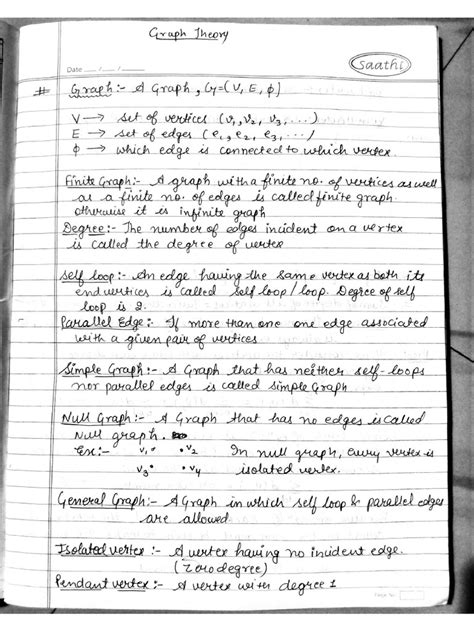 Graph Theory
Date __/__/__
Saathi
# Graph :- A Graph, G=(V, E, ϕ)
V → set of vertices (v₁, v₂, v₃, ....)
E → set of edges (e₁, e₂, e₃, .../
ϕ → which edge is connected to which vertex.
Finite Graph:- A graph with a finite no. of vertices as well
as a finite no. of edges is called finite graph.
otherwise it is infinite graph
Degree:- The number of edges incident on a vertex
is called the degree of vertex
Self loop:- An edge having the same vertex as both its
end vertices is called self loop/loop. Degree of self
loop is 2.
Parallel Edge:- If more than one one edge associated
with a given pair of vertices
Simple Graph:- A Graph that has neither self-loops
nor parallel edges is called simple Graph
Null Graph:- A Graph that has no edges is called
Null graph.
Ex:- v₁• •v₂ In null graph, every vertex is
v₃• •v₄ isolated vertex.
General Graph:- A Graph in which self loop & parallel edges
are allowed
Isolated vertex :- A vertex having no incident edge.
(zero degree)
Pendant vertex:- A vertex with degree 1
Page No.